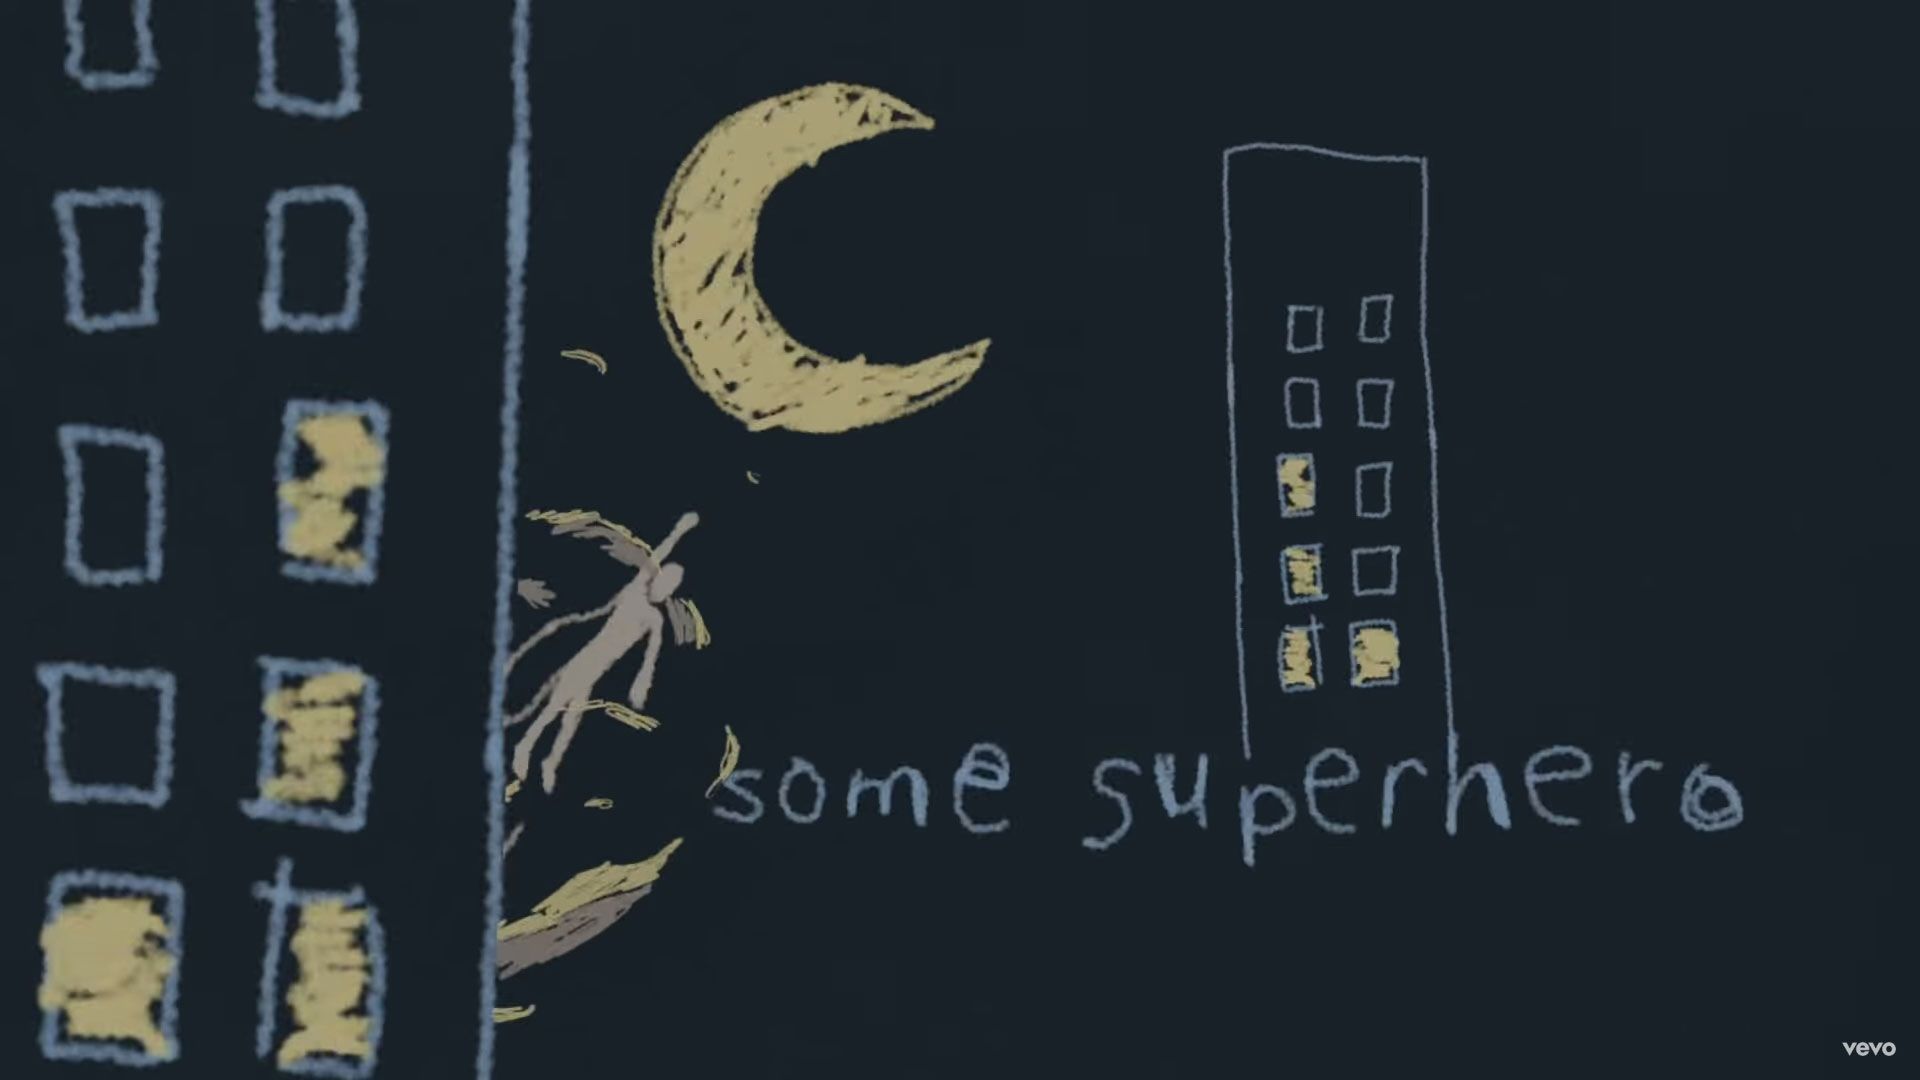 some superhero
vevo